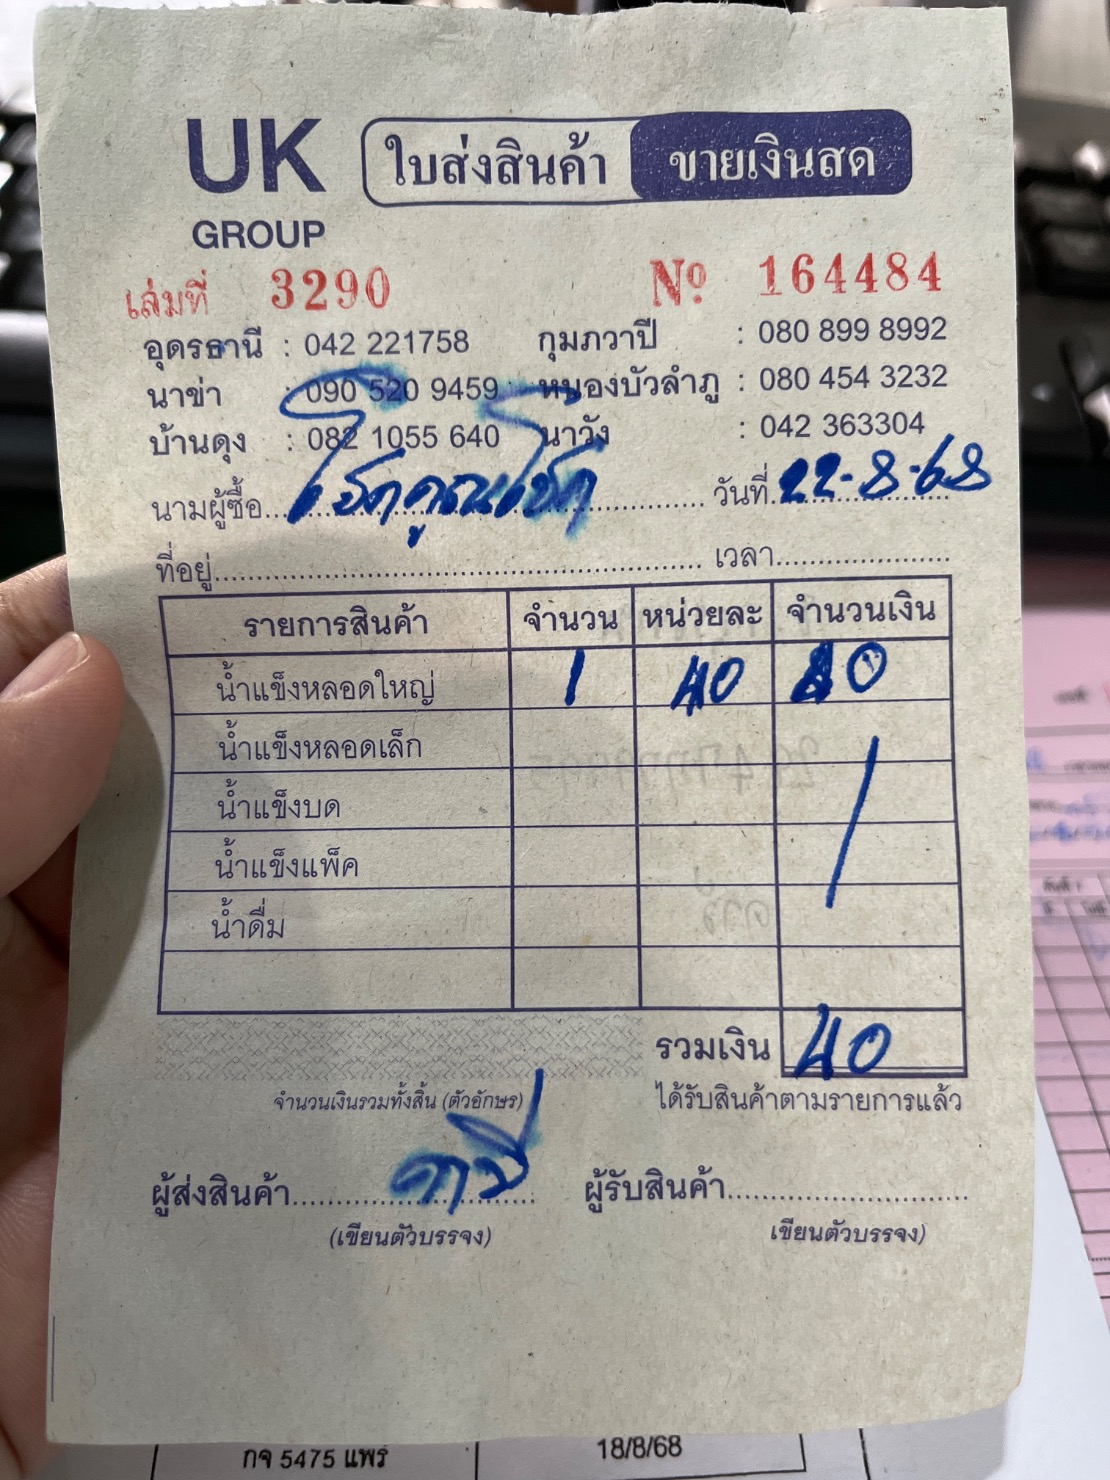 UK GROUP ใบส่งสินค้า ขายเงินสด
เล่มที่ 3290 Nº 164484
อุดรธานี : 042 221758 กุมภวาปี : 080 899 8992
นาข่า : 090 520 9459 หนองบัวลำภู : 080 454 3232
บ้านดุง : 082 1055 640 นาวัง : 042 363304
นามผู้ซื้อ โชคคูณโชค วันที่ 22-8-68
ที่อยู่ เวลา
รายการสินค้า จำนวน หน่วยละ จำนวนเงิน
น้ำแข็งหลอดใหญ่ 1 40 40
น้ำแข็งหลอดเล็ก
น้ำแข็งบด
น้ำแข็งแพ็ค
น้ำดื่ม
รวมเงิน 40
จำนวนเงินรวมทั้งสิ้น (ตัวอักษร) ได้รับสินค้าตามรายการแล้ว
ผู้ส่งสินค้า ผู้รับสินค้า
(เขียนตัวบรรจง) เขียนตัวบรรจง)
กจ 5475 แพร่ 18/8/68